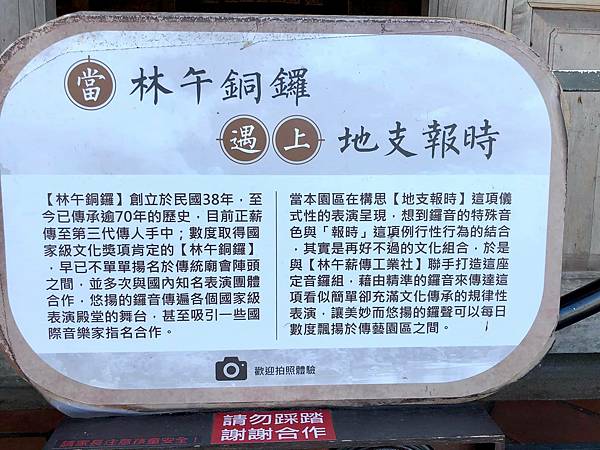 當 林午銅鑼
遇上 地支報時
【林午銅鑼】創立於民國38年，至
今已傳承逾70年的歷史，目前正薪
傳至第三代傳人手中；數度取得國
家級文化獎項肯定的【林午銅鑼】
，早已不單單揚名於傳統廟會陣頭
之間，並多次與國內知名表演團體
合作，悠揚的鑼音傳遍各個國家級
表演殿堂的舞台，甚至吸引一些國
際音樂家指名合作。
當本園區在構思【地支報時】這項儀
式性的表演呈現，想到鑼音的特殊音
色與「報時」這項例行性行為的結合
，其實是再好不過的文化組合，於是
與【林午薪傳工業社】聯手打造這座
定音鑼組，藉由精準的鑼音來傳達這
項看似簡單卻充滿文化傳承的規律性
表演，讓美妙而悠揚的鑼聲可以每日
數度飄揚於傳藝園區之間。
歡迎拍照體驗
請勿踩踏
謝謝合作
請家長注意孩童安全！